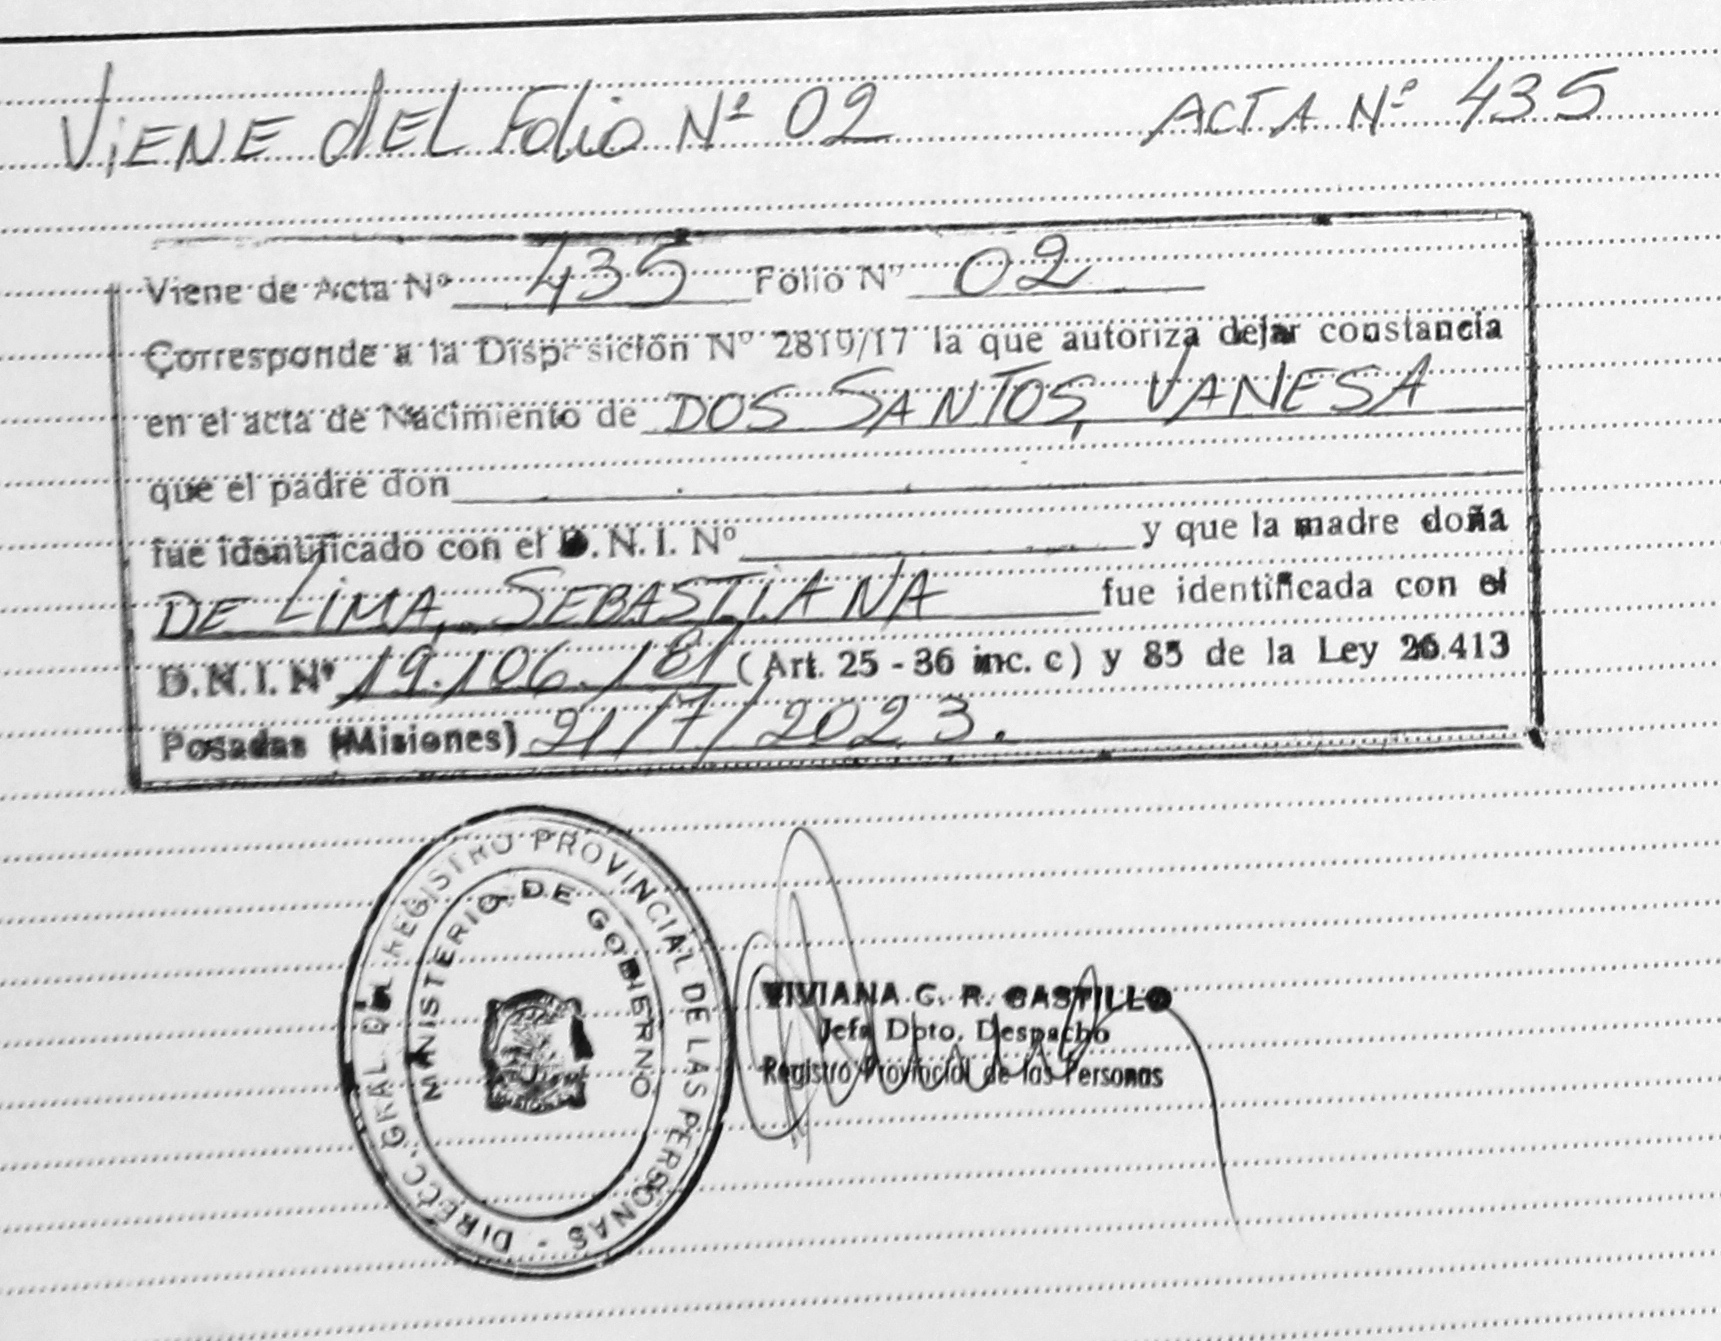 ViENE dEL Folio Nº 02 ACTA Nº 435
Viene de Acta Nº 435 Folio Nº 02
Corresponde a la Disposición Nº 2819/17 la que autoriza dejar constancia
en el acta de Nacimiento de DOS SANTOS, VANESA
que el padre don
fue identificado con el D.N.I. Nº y que la madre doña
DE LiMA, SEBASTiANA fue identificada con el
D.N.I. Nº 19.106.181 (Art. 25 - 36 inc. c) y 85 de la Ley 26.413
Posadas (Misiones) 21/7/2023.
DIRECC. GRAL. DEL REGISTRO PROVINCIAL DE LAS PERSONAS -
MINISTERIO DE GOBIERNO
VIVIANA G. R. CASTILLO
Jefa Dpto. Despacho
Registro Provincial de las Personas